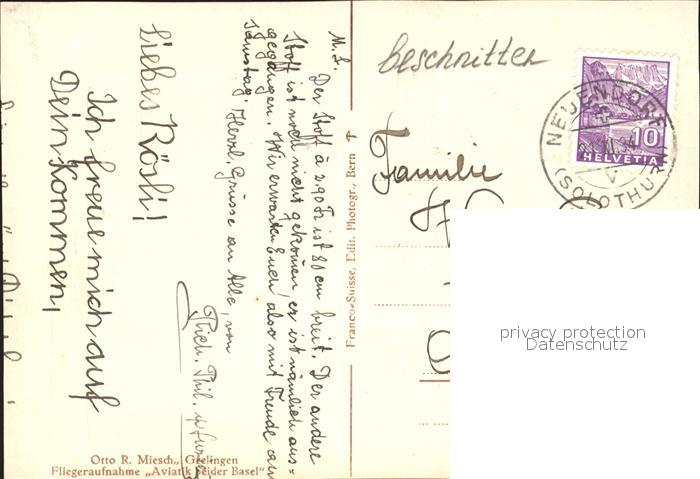 beschnitten
HELVETIA
10
NEUENDORF
(SOLOTHURN)
Familie
privacy protection
Datenschutz
Franco-Suisse, Edit. Photogr., Bern
M. L.
Der Stoff à 2.90 Fr ist 80 cm breit. Der andere
Stoff ist noch nicht gekommen, er ist nämlich aus=
gegangen. Wir erwarten Euch also mit Freude am
Samstag. Herzl. Grüsse an Alle, von
Liebes Rösli!
Ich freue mich auf
Dein Kommen,
Otto R. Miesch, Grellingen
Fliegeraufnahme „Aviatik beider Basel"